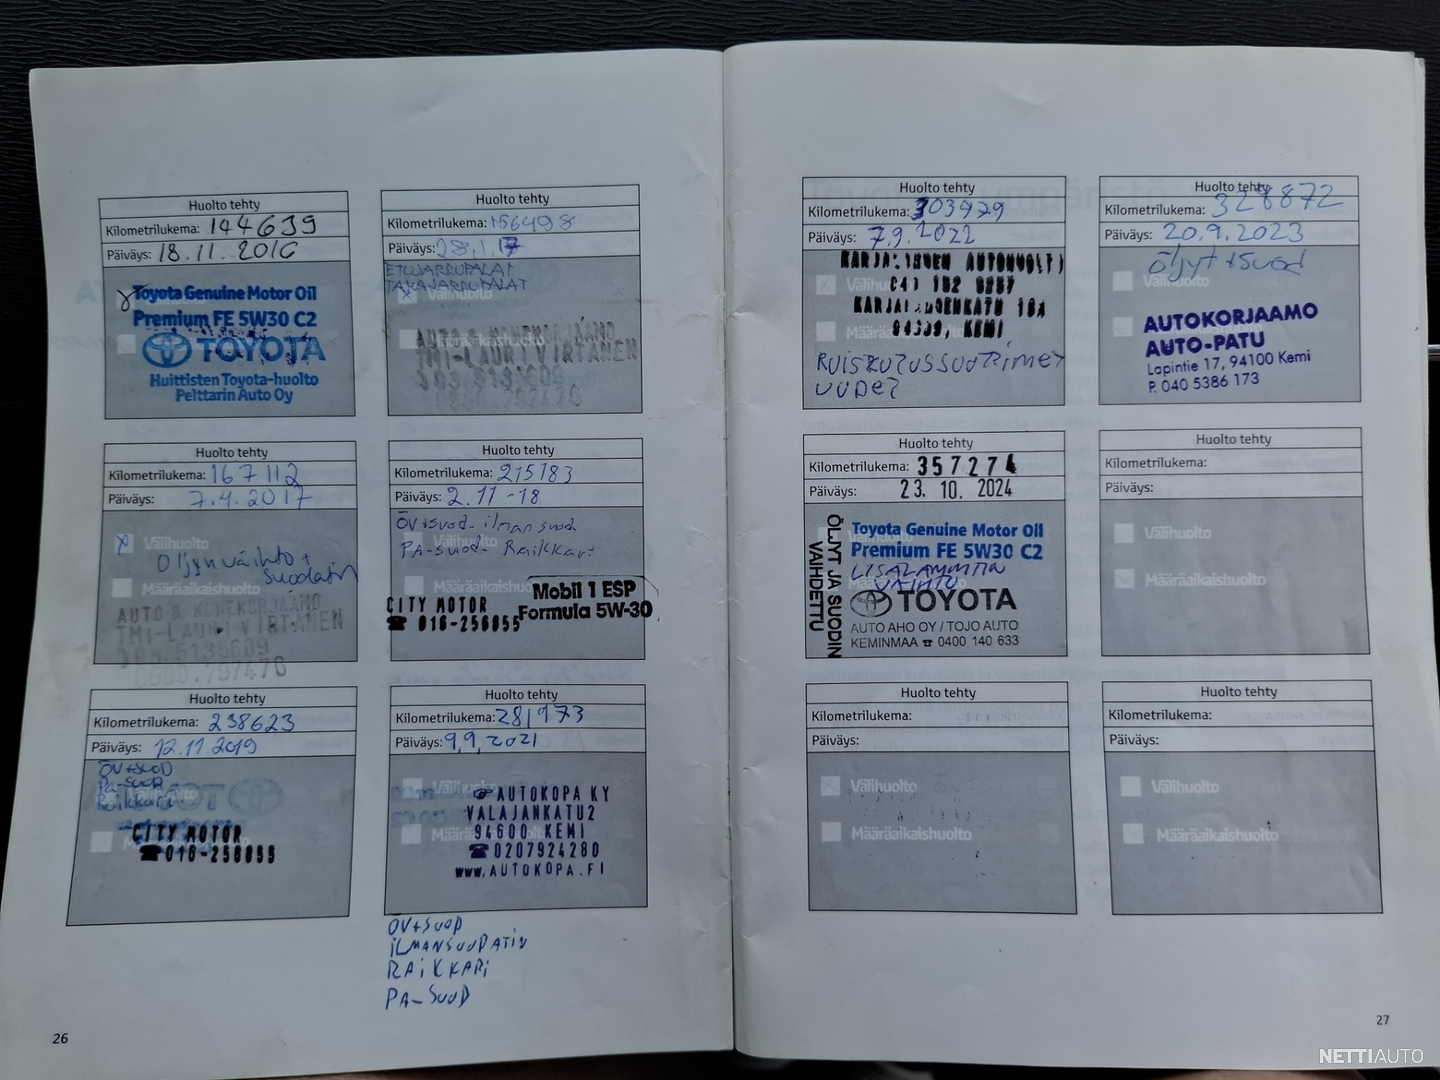 Huolto tehty
Kilometrilukema: 144639
Päiväys: 18.11.2016
Toyota Genuine Motor Oil
Premium FE 5W30 C2
TOYOTA
Huittisten Toyota-huolto
Pelttarin Auto Oy
Huolto tehty
Kilometrilukema: 156498
Päiväys: 28.1.17
ETUJARRUPALAT
TAKAJARRUPALAT
Välihuolto
Määräaikaishuolto
AUTO & KONEKORJAAMO
TMI-LAURI VIRTANEN
Huolto tehty
Kilometrilukema: 167112
Päiväys: 7.4.2017
Välihuolto
Öljynvaihto +
suodatin
Määräaikaishuolto
AUTO & KONEKORJAAMO
TMI-LAURI VIRTANEN
Huolto tehty
Kilometrilukema: 215183
Päiväys: 2.11-18
ÖV+suod- ilmansuod
PA-suod- Raikkari
Määräaikaishuolto
Mobil 1 ESP
Formula 5W-30
CITY MOTOR
☎ 016-256055
Huolto tehty
Kilometrilukema: 238623
Päiväys: 12.11.2019
ÖV+SUOD
PA-SUOD
Raikkari
CITY MOTOR
☎016-256055
Huolto tehty
Kilometrilukema: 281973
Päiväys: 9,9,2021
Välihuolto
Määräaikaishuolto
AUTOKOPA KY
VALAJANKATU2
94600 KEMI
☎0207924280
www.AUTOKOPA.FI
ÖV+SUOD
ILMANSUODATIN
RAIKKARI
PA-SUOD
26
Huolto tehty
Kilometrilukema: 303929
Päiväys: 7.9.2022
KEMI
RUISKUTUSSUUTTIMET
UUDET
Huolto tehty
Kilometrilukema: 328872
Päiväys: 20.9.2023
Öljyt + suod
Välihuolto
AUTOKORJAAMO
AUTO-PATU
Lapintie 17, 94100 Kemi
P. 040 5386 173
Huolto tehty
Kilometrilukema: 357274
Päiväys: 23. 10. 2024
ÖLJYT JA SUODIN
VAIHDETTU
Toyota Genuine Motor Oil
Premium FE 5W30 C2
LISÄLÄMMITIN
VAIHTO
TOYOTA
AUTO AHO OY / TOJO AUTO
KEMINMAA ☎ 0400 140 633
Huolto tehty
Kilometrilukema:
Päiväys:
Välihuolto
Määräaikaishuolto
Huolto tehty
Kilometrilukema:
Päiväys:
Välihuolto
Määräaikaishuolto
Huolto tehty
Kilometrilukema:
Päiväys:
Välihuolto
Määräaikaishuolto
27
NETTIAUTO